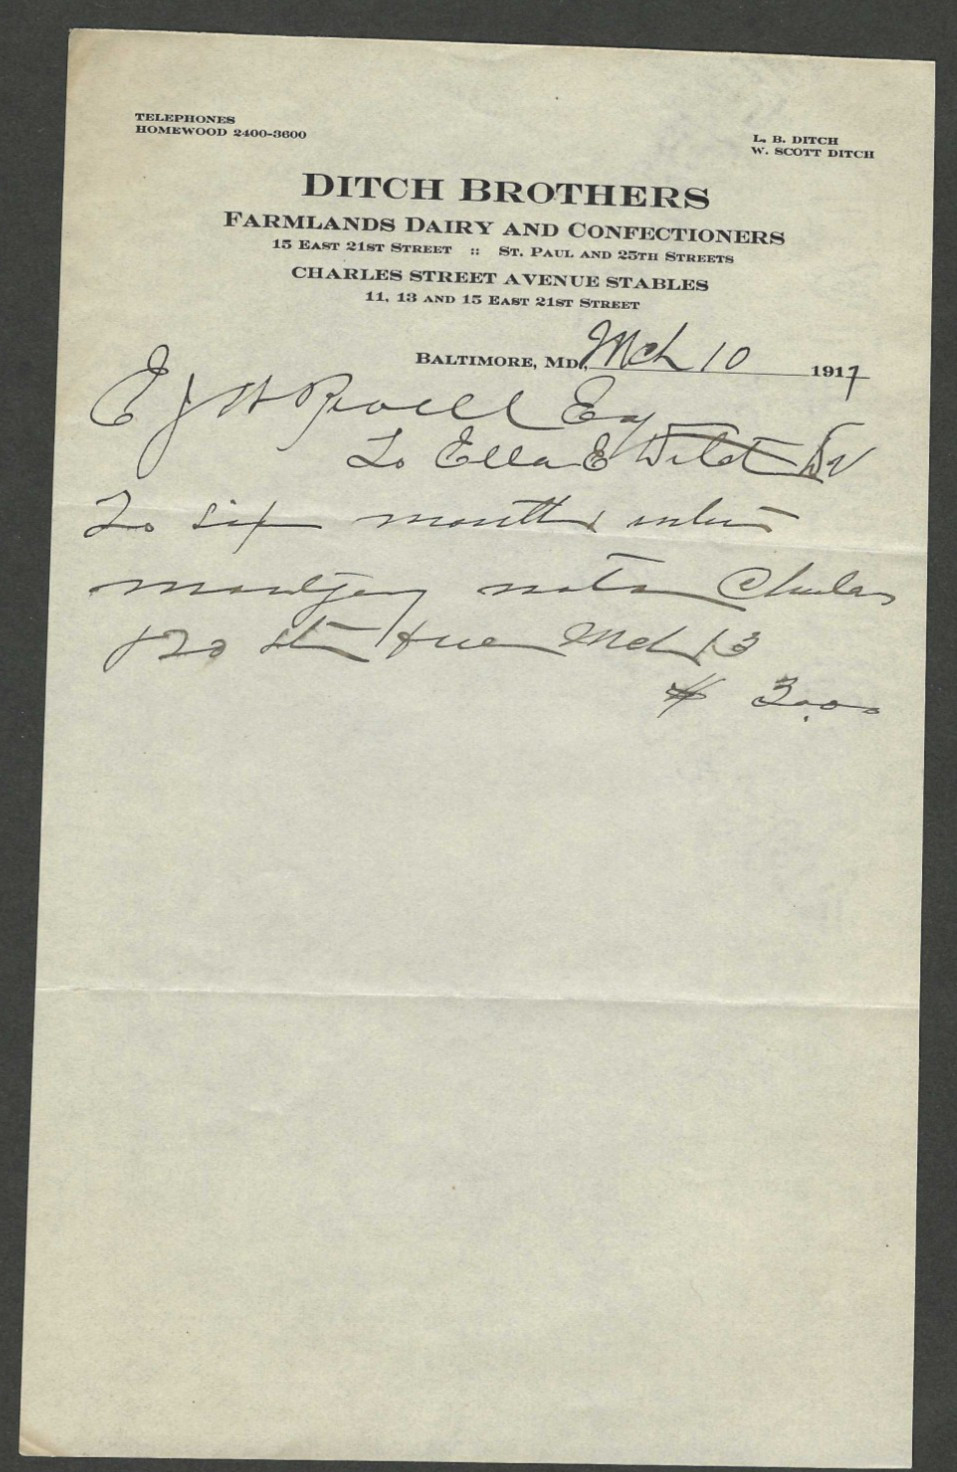 TELEPHONES
HOMEWOOD 2400-3600
L. B. DITCH
W. SCOTT DITCH
DITCH BROTHERS
FARMLANDS DAIRY AND CONFECTIONERS
15 EAST 21ST STREET :: ST. PAUL AND 25TH STREETS
CHARLES STREET AVENUE STABLES
11, 13 AND 15 EAST 21ST STREET
BALTIMORE, MD., Mch 10 1917
E J W Revell Esq
To Ella E Dr
To six months
mortgage Charles
& 20 St due Mch 13
$ 30.00